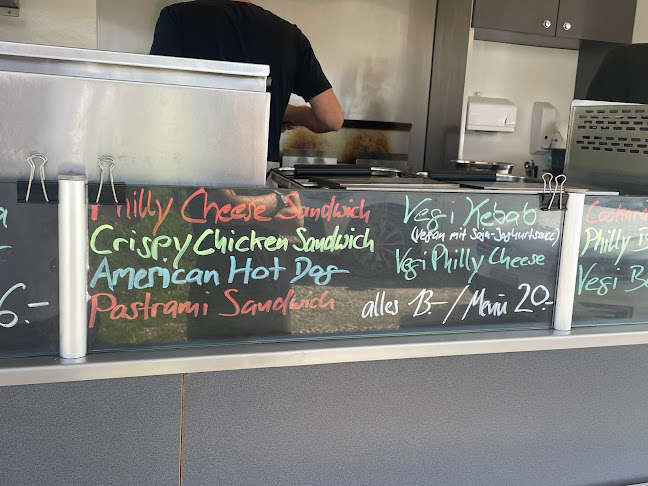 6.-
Philly Cheese Sandwich
Crispy Chicken Sandwich
American Hot Dog
Pastrami Sandwich
Vegi Kebab
(Vegan mit Soja-Joghurtsauce)
Vegi Philly Cheese
alles 13.-/Menü 20.-
Philly
Vegi